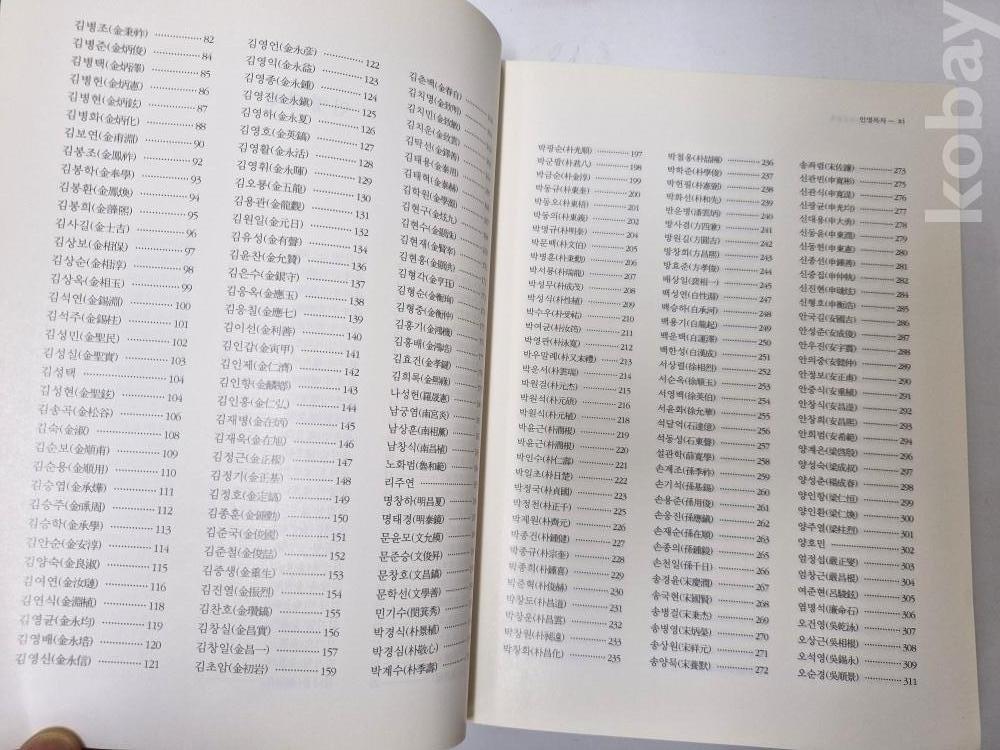 김병조(金秉祚) 82
김병준(金炳俊) 84
김병택(金炳澤) 85
김병헌(金炳憲) 86
김병현(金炳鉉) 87
김병화(金炳化) 88
김보연(金甫淵) 90
김봉조(金鳳祚) 92
김봉학(金奉學) 93
김봉환(金鳳煥) 94
김봉희(金藻熙) 95
김사길(金士吉) 96
김상보(金相保) 97
김상순(金相淳) 98
김상옥(金相玉) 99
김석연(金錫淵) 100
김석주(金錫柱) 101
김성민(金聖民) 102
김성실(金聖實) 103
김성택 104
김성현(金聖鉉) 104
김송곡(金松谷) 106
김숙(金淑) 108
김순보(金順甫) 109
김순용(金順用) 110
김승엽(金承燁) 111
김승주 112
김승학(金承學) 113
김안순(金安淳) 114
김양숙(金良淑) 115
김여연(金汝璉) 116
김연식(金淵植) 118
김영균(金永均) 119
김영배(金永培) 120
김영신(金永信) 121
김영언(金永彦) 122
김영익(金永益) 123
김영종(金永鍾) 124
김영진(金永鎭) 125
김영하(金永夏) 126
김영호(金英鎬) 127
김영활(金永活) 128
김영휘(金永暉) 129
김오룡(金五龍) 130
김용관(金龍觀) 131
김원일(金元日) 132
김유성(金有聲) 134
김윤찬(金允贊) 136
김은수(金銀守) 137
김응옥(金應玉) 138
김응칠(金應七) 139
김이선(金利善) 140
김인갑(金寅甲) 141
김인제(金仁濟) 142
김인항(金麟鄕) 143
김인홍(金仁弘) 144
김재병(金在炳) 145
김재욱(金在旭) 146
김정근(金正根) 147
김정기(金正基) 148
김정호(金定鎬) 149
김종훈(金領勳) 150
김준국(金俊國) 151
김준철(金俊喆) 152
김중생(金重生) 153
김진열(金振烈) 154
김찬호(金瓚鎬) 155
김창실(金昌實) 156
김창일(金昌一) 157
김초암(金初岩) 159
김춘백(金春白)
김치명(金致明)
김치민(金致敏)
김치운(金致雲)
김탁선(金鐸善)
김태용(金泰用)
김태혁(金泰赫)
김학원(金學源)
김현구(金炫九)
김현수(金顯洙)
김현재(金賢宰)
김현홍(金顯洪)
김형각(金亨珏)
김형순(金衡珣)
김형중(金衡仲)
김홍기(金鴻機)
김홍배(金鴻培)
김효건(金孝鍵)
김희목(金熙穆)
나성헌(羅晟憲)
남궁염(南宮炎)
남상훈(南相薰)
남창식(南昌植)
노화범(魯和範)
리주연
명창하(明昌夏)
명태정(明泰鋌)
문윤모(文允模)
문준승(文俊昇)
문창호(文昌鎬)
문학선(文學善)
민기수(閔箕秀)
박경식(朴景植)
박경심(朴敬心)
박계수(朴季壽)
인명목차 — xi
박광순(朴光順) 197
박군팔(朴君八) 198
박금순(朴金淳) 199
박동규(朴東奎) 200
박동오(朴東梧) 201
박동의(朴東義) 202
박명규(朴明奎) 204
박문백(朴文伯) 205
박병훈(朴秉勳) 206
박서룡(朴瑞龍) 207
박성무(朴成茂) 208
박성식(朴性植) 209
박수우(朴受祐) 210
박여균(朴汝筠) 211
박영관(朴泳寬) 212
박우말례(朴又末禮) 213
박운서(朴雲瑞) 214
박원걸(朴元杰) 215
박원석(朴元碩) 216
박원식(朴元植) 218
박윤근(朴潤根) 219
박윤근(朴潤根) 221
박인수(朴仁壽) 222
박일초(朴日楚) 223
박정국(朴貞國) 224
박정천(朴正千) 225
박제원(朴齊元) 226
박종건(朴鍾健) 227
박종규(朴宗奎) 228
박종희(朴鍾喜) 229
박준혁(朴俊赫) 230
박창도(朴昌道) 231
박창운(朴昌雲) 232
박창원(朴昶遠) 233
박창화(朴昌化) 235
박철옹(朴喆雍) 236
박학준(朴學俊) 237
박헌필(朴憲弼) 238
박화선(朴和先) 239
반운병(潘雲炳) 240
방사겸(方四兼) 241
방원길(方圓吉) 242
방창희(方昌熙) 243
방효준(方孝俊) 244
배상일(裵相一) 245
백성연(白性淵) 246
백승하(白承河) 248
백용기(白龍起) 249
백운택(白運澤) 250
백한성(白漢成) 251
서상렬(徐相烈) 252
서순옥(徐順玉) 253
서영백(徐英伯) 254
서윤화(徐允華) 255
석달억(石達億) 256
석동성(石東聲) 257
설관학(薛寬學) 258
손계조(孫季祚) 259
손기식(孫基錫) 260
손용준(孫用俊) 261
손응진(孫應鎭) 262
손재순(孫在順) 263
손종의(孫鍾毅) 264
손천일(孫千日) 265
송경윤(宋慶潤) 267
송국현(宋國賢) 268
송병걸(宋秉杰) 269
송병영(宋炳榮) 270
송상원(宋祥元) 271
송양묵(宋養默) 272
송좌렴(宋佐濂) 273
신관빈(申寬彬) 275
신관식(申寬湜) 276
신광균(申光均) 277
신대용(申大勇) 278
신동윤(申東潤) 279
신동헌(申東憲) 280
신종선(申鍾善) 281
신중집(申仲執) 282
신진현(申瑨鉉) 284
신형호(申衡浩) 285
안국길(安國吉) 286
안성준(安成俊) 287
안우진(安宇震) 288
안의중(安毅仲) 289
안정보(安正甫) 290
안중식(安重植) 291
안창식(安昌湜) 292
안창희(安昌熙) 293
안희범(安希範) 294
양계은(梁啓殷) 295
양성숙(梁成叔) 297
양성춘(楊成春) 298
양인항(梁仁恒) 299
양인환(梁仁煥) 300
양주열(梁柱烈) 301
양호민 302
엄정섭(嚴正燮) 303
엄창근(嚴昌根) 304
여준현(呂駿鉉) 305
염명석(廉命石) 306
오건영(吳乾泳) 307
오상근(吳相根) 308
오석영(吳錫永) 309
오순경(吳順景) 311
kobay